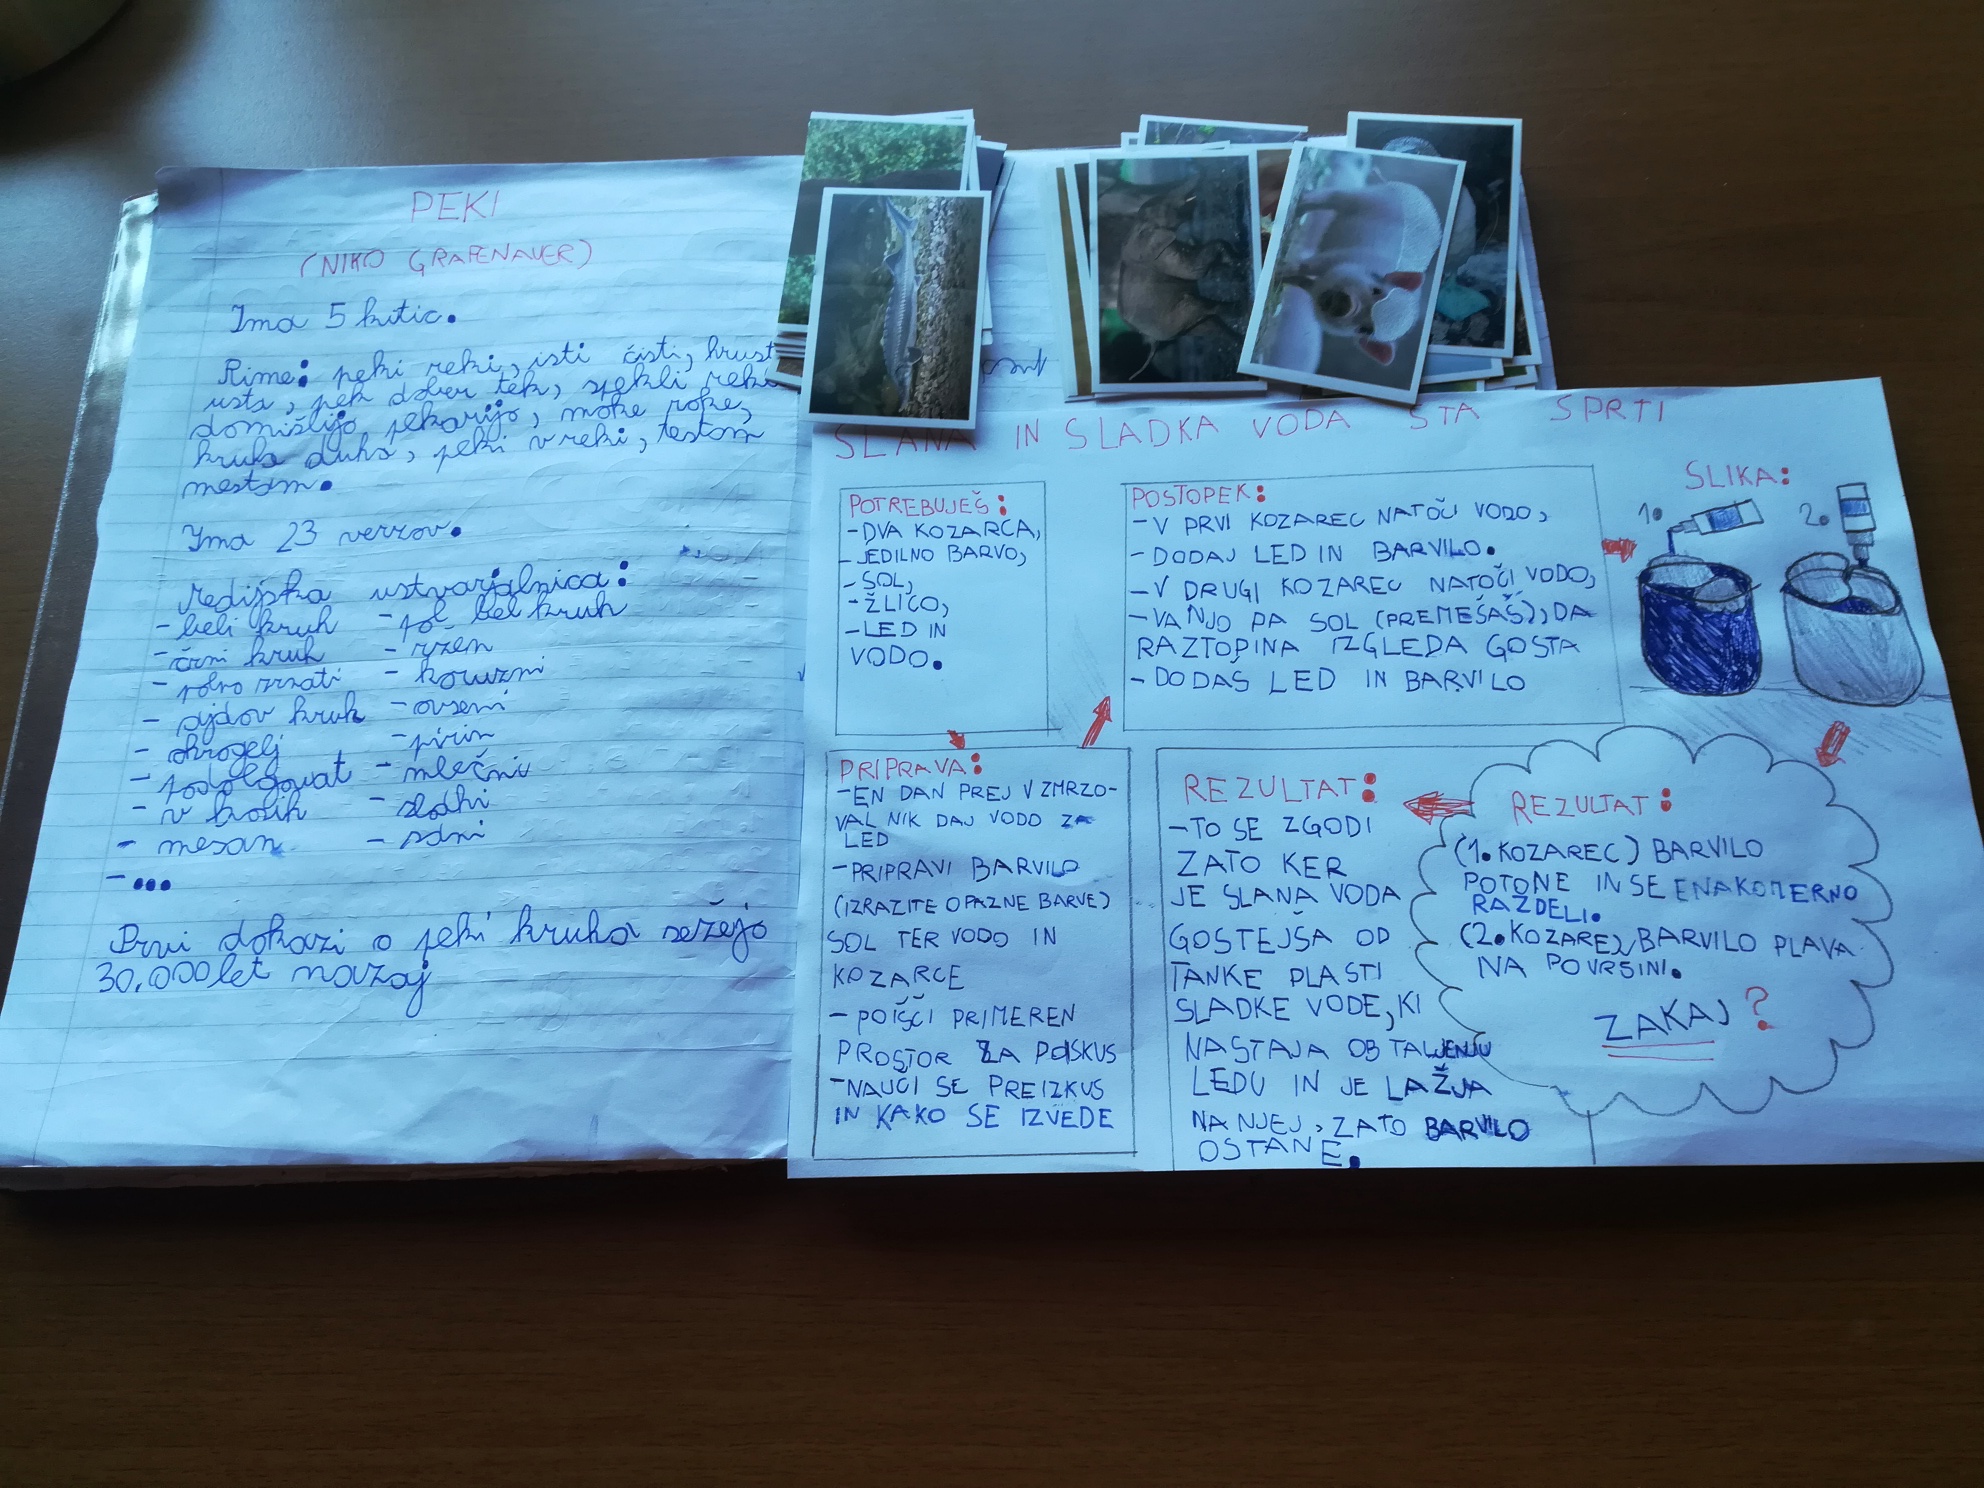 PEKI
(NIKO GRAFENAUER)
Ima 5 kitic.
Rime: peki reki, isti čisti, hrust
usta, pek dober tek, spekli rekli
domišlijo pekarijo, moke roke,
kruha duha, peki v reki, testom
mestom.
Ima 23 verzov.
Medijska ustvarjalnica:
- beli kruh - pol bel kruh
- črni kruh - ržen
- polno zrnati - koruzni
- ajdov kruh - ovseni
- okrogelj - pirin
- podolgovat - mlečni
- v kosih - sladki
- mešan - sadni
- ...
Prvi dokazi o peki kruha sežejo
30.000 let nazaj
SLANA IN SLADKA VODA STA SPRTI
POTREBUJEŠ:
- DVA KOZARCA,
- JEDILNO BARVO,
- SOL,
- ŽLICO,
- LED IN
VODO.
PRIPRAVA:
- EN DAN PREJ V ZMRZO-
VALNIK DAJ VODO ZA
LED
- PRIPRAVI BARVILO
(IZRAZITE OPAZNE BARVE)
SOL TER VODO IN
KOZARCE
- POIŠČI PRIMEREN
PROSTOR ZA POSKUS
- NAUČI SE PREIZKUS
IN KAKO SE IZVEDE
POSTOPEK:
- V PRVI KOZAREC NATOČI VODO,
- DODAJ LED IN BARVILO.
- V DRUGI KOZAREC NATOČI VODO,
- VANJO PA SOL (PREMEŠAŠ), DA
RAZTOPINA IZGLEDA GOSTA
- DODAŠ LED IN BARVILO
SLIKA:
1. 2.
REZULTAT:
(1. KOZAREC) BARVILO
POTONE IN SE ENAKOMERNO
RAZDELI.
(2. KOZAREC) BARVILO PLAVA
NA POVRŠINI.
ZAKAJ?
REZULTAT:
- TO SE ZGODI
ZATO KER
JE SLANA VODA
GOSTEJŠA OD
TANKE PLASTI
SLADKE VODE, KI
NASTAJA OB TALJENJU
LEDU IN JE LAŽJA
NA NJEJ, ZATO BARVILO
OSTANE.